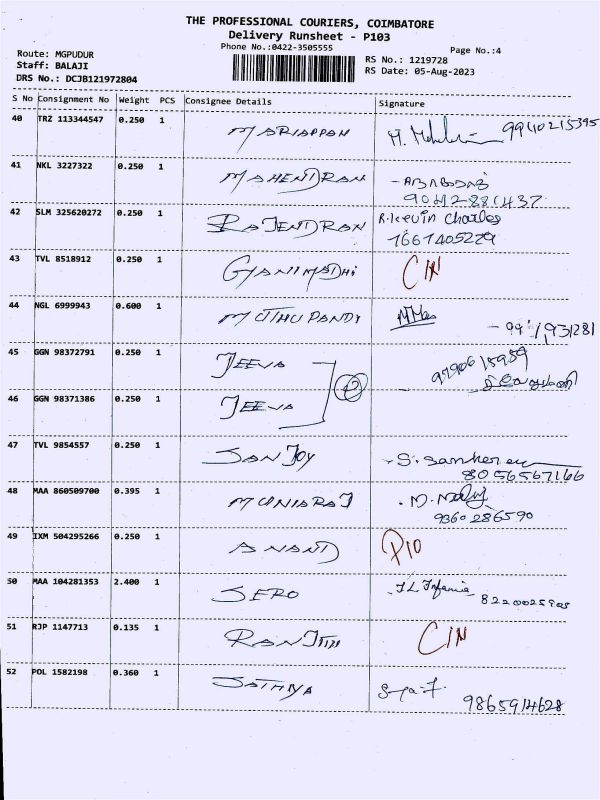 THE PROFESSIONAL COURIERS, COIMBATORE
Delivery Runsheet - P103
Phone No.:0422-3505555
Page No.:4
Route: MGPUDUR
RS No.: 1219728
Staff: BALAJI
RS Date: 05-Aug-2023
DRS No.: DCJB121972804
S No Consignment No Weight PCS Consignee Details Signature
40 TRZ 113344547 0.250 1 MARIAPPAN 9940215395
41 NKL 3227322 0.250 1 MAHENDRAN
42 SLM 325620272 0.250 1 RAJENDRAN R.Kevin Charles
7667405229
43 TVL 8518912 0.250 1 GANIMADHI C/N
44 NGL 6999943 0.600 1 MUTHU PANDI
45 GGN 98372791 0.250 1 JEEVA
46 GGN 98371386 0.250 1 JEEVA 2
47 TVL 9854557 0.250 1 SANJOY
8056567166
48 MAA 860509700 0.395 1 MUNIARAJ
9360286590
49 IXM 504295266 0.250 1 ANAND P10
50 MAA 104281353 2.400 1 SERO
51 RJP 1147713 0.135 1 RANJITH C/N
52 POL 1582198 0.360 1 SATHYA
9865914628